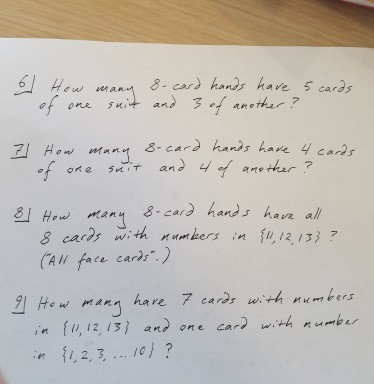 6] How many 8-card hands have 5 cards
of one suit and 3 of another?
7] How many 8-card hands have 4 cards
of one suit and 4 of another?
8] How many 8-card hands have all
8 cards with numbers in {11,12,13}?
("All face cards".)
9] How many have 7 cards with numbers
in {11,12,13} and one card with number
in {1,2,3,...10}?